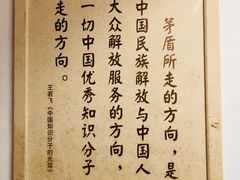 茅盾所走的方向，是
中国民族解放与中国人
大众解放服务的方向，
一切中国优秀知识分子
走的方向。
王若飞《中国知识分子的光荣》